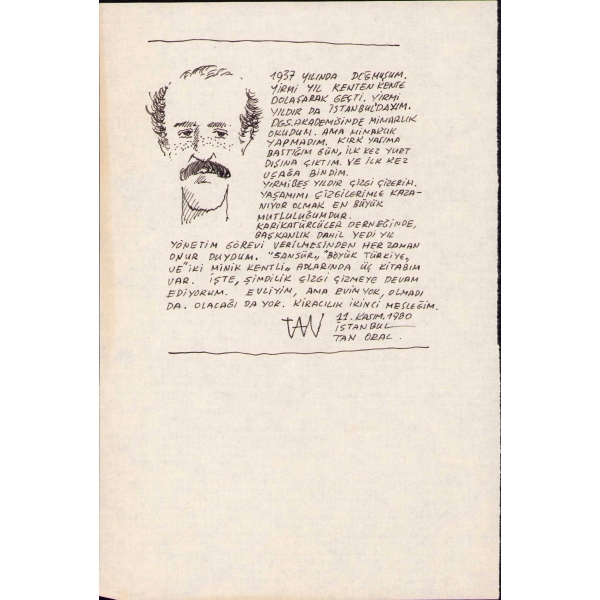 1937 YILINDA DOĞMUŞUM.
YİRMİ YIL KENTEN KENTE
DOLAŞARAK GEÇTİ. YİRMİ
YILDIR DA İSTANBUL'DAYIM.
DGS.AKADEMİSİNDE MİMARLIK
OKUDUM. AMA MİMARLIK
YAPMADIM. KIRK YAŞIMA
BASTIĞIM GÜN, İLK KEZ YURT
DIŞINA ÇIKTIM. VE İLK KEZ
UÇAĞA BİNDİM.
YİRMİBEŞ YILDIR ÇİZGİ ÇİZERİM.
YAŞAMIMI ÇİZGİLERİMLE KAZA-
NIYOR OLMAK EN BÜYÜK
MUTLULUĞUMDUR.
KARİKATÜRCÜLER DERNEĞİNDE,
BAŞKANLIK DAHİL YEDİ YIL
YÖNETİM GÖREVİ VERİLMESİNDEN HER ZAMAN
ONUR DUYDUM. "SANSÜR", "BÖYÜK TÜRKİYE"
VE "İKİ MİNİK KENTLİ" ADLARINDA ÜÇ KİTABIM
VAR. İŞTE, ŞİMDİLİK ÇİZGİ ÇİZMEYE DEVAM
EDİYORUM. EVLİYİM, AMA EVİM YOK, OLMADI
DA. OLACAĞI DA YOK. KİRACILIK İKİNCİ MESLEĞİM.
TAN
11.KASIM.1980
İSTANBUL
TAN ORAL.